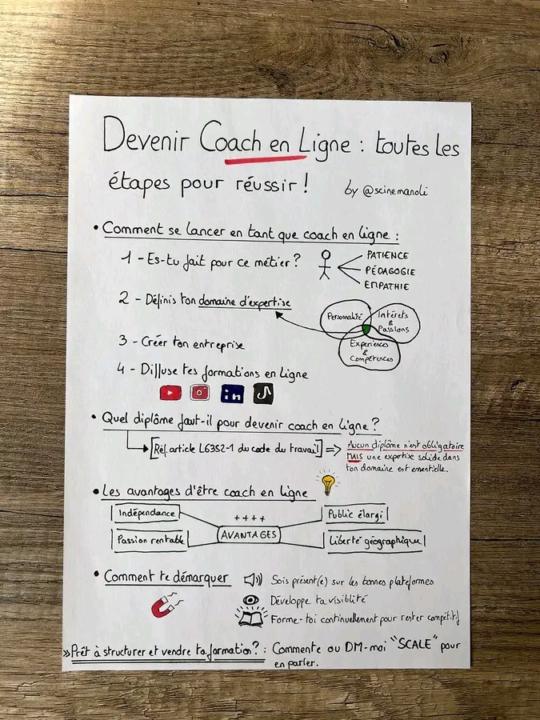 Devenir Coach en Ligne : toutes les
étapes pour réussir !
by @scinemanoli
• Comment se lancer en tant que coach en ligne :
1 - Es-tu fait pour ce métier ?
PATIENCE
PÉDAGOGIE
EMPATHIE
2 - Définis ton domaine d'expertise
Personnalité
Intérêts
&
Passions
Expériences
&
Compétences
3 - Créer ton entreprise
4 - Diffuse tes formations en Ligne
in
• Quel diplôme faut-il pour devenir coach en ligne ?
[Ref. article L6352-1 du code du travail] => Aucun diplôme n'est obligatoire
MAIS une expertise solide dans
ton domaine est essentielle.
• Les avantages d'être coach en ligne
Indépendance
++++
Public élargi
Passion rentable
AVANTAGES
Liberté géographique
• Comment te démarquer
Sois présent(e) sur les bonnes plateformes
Développe ta visibilité
Forme-toi continuellement pour rester compétitif
»Prêt à structurer et vendre ta formation? : Commente ou DM-moi "SCALE" pour
en parler.